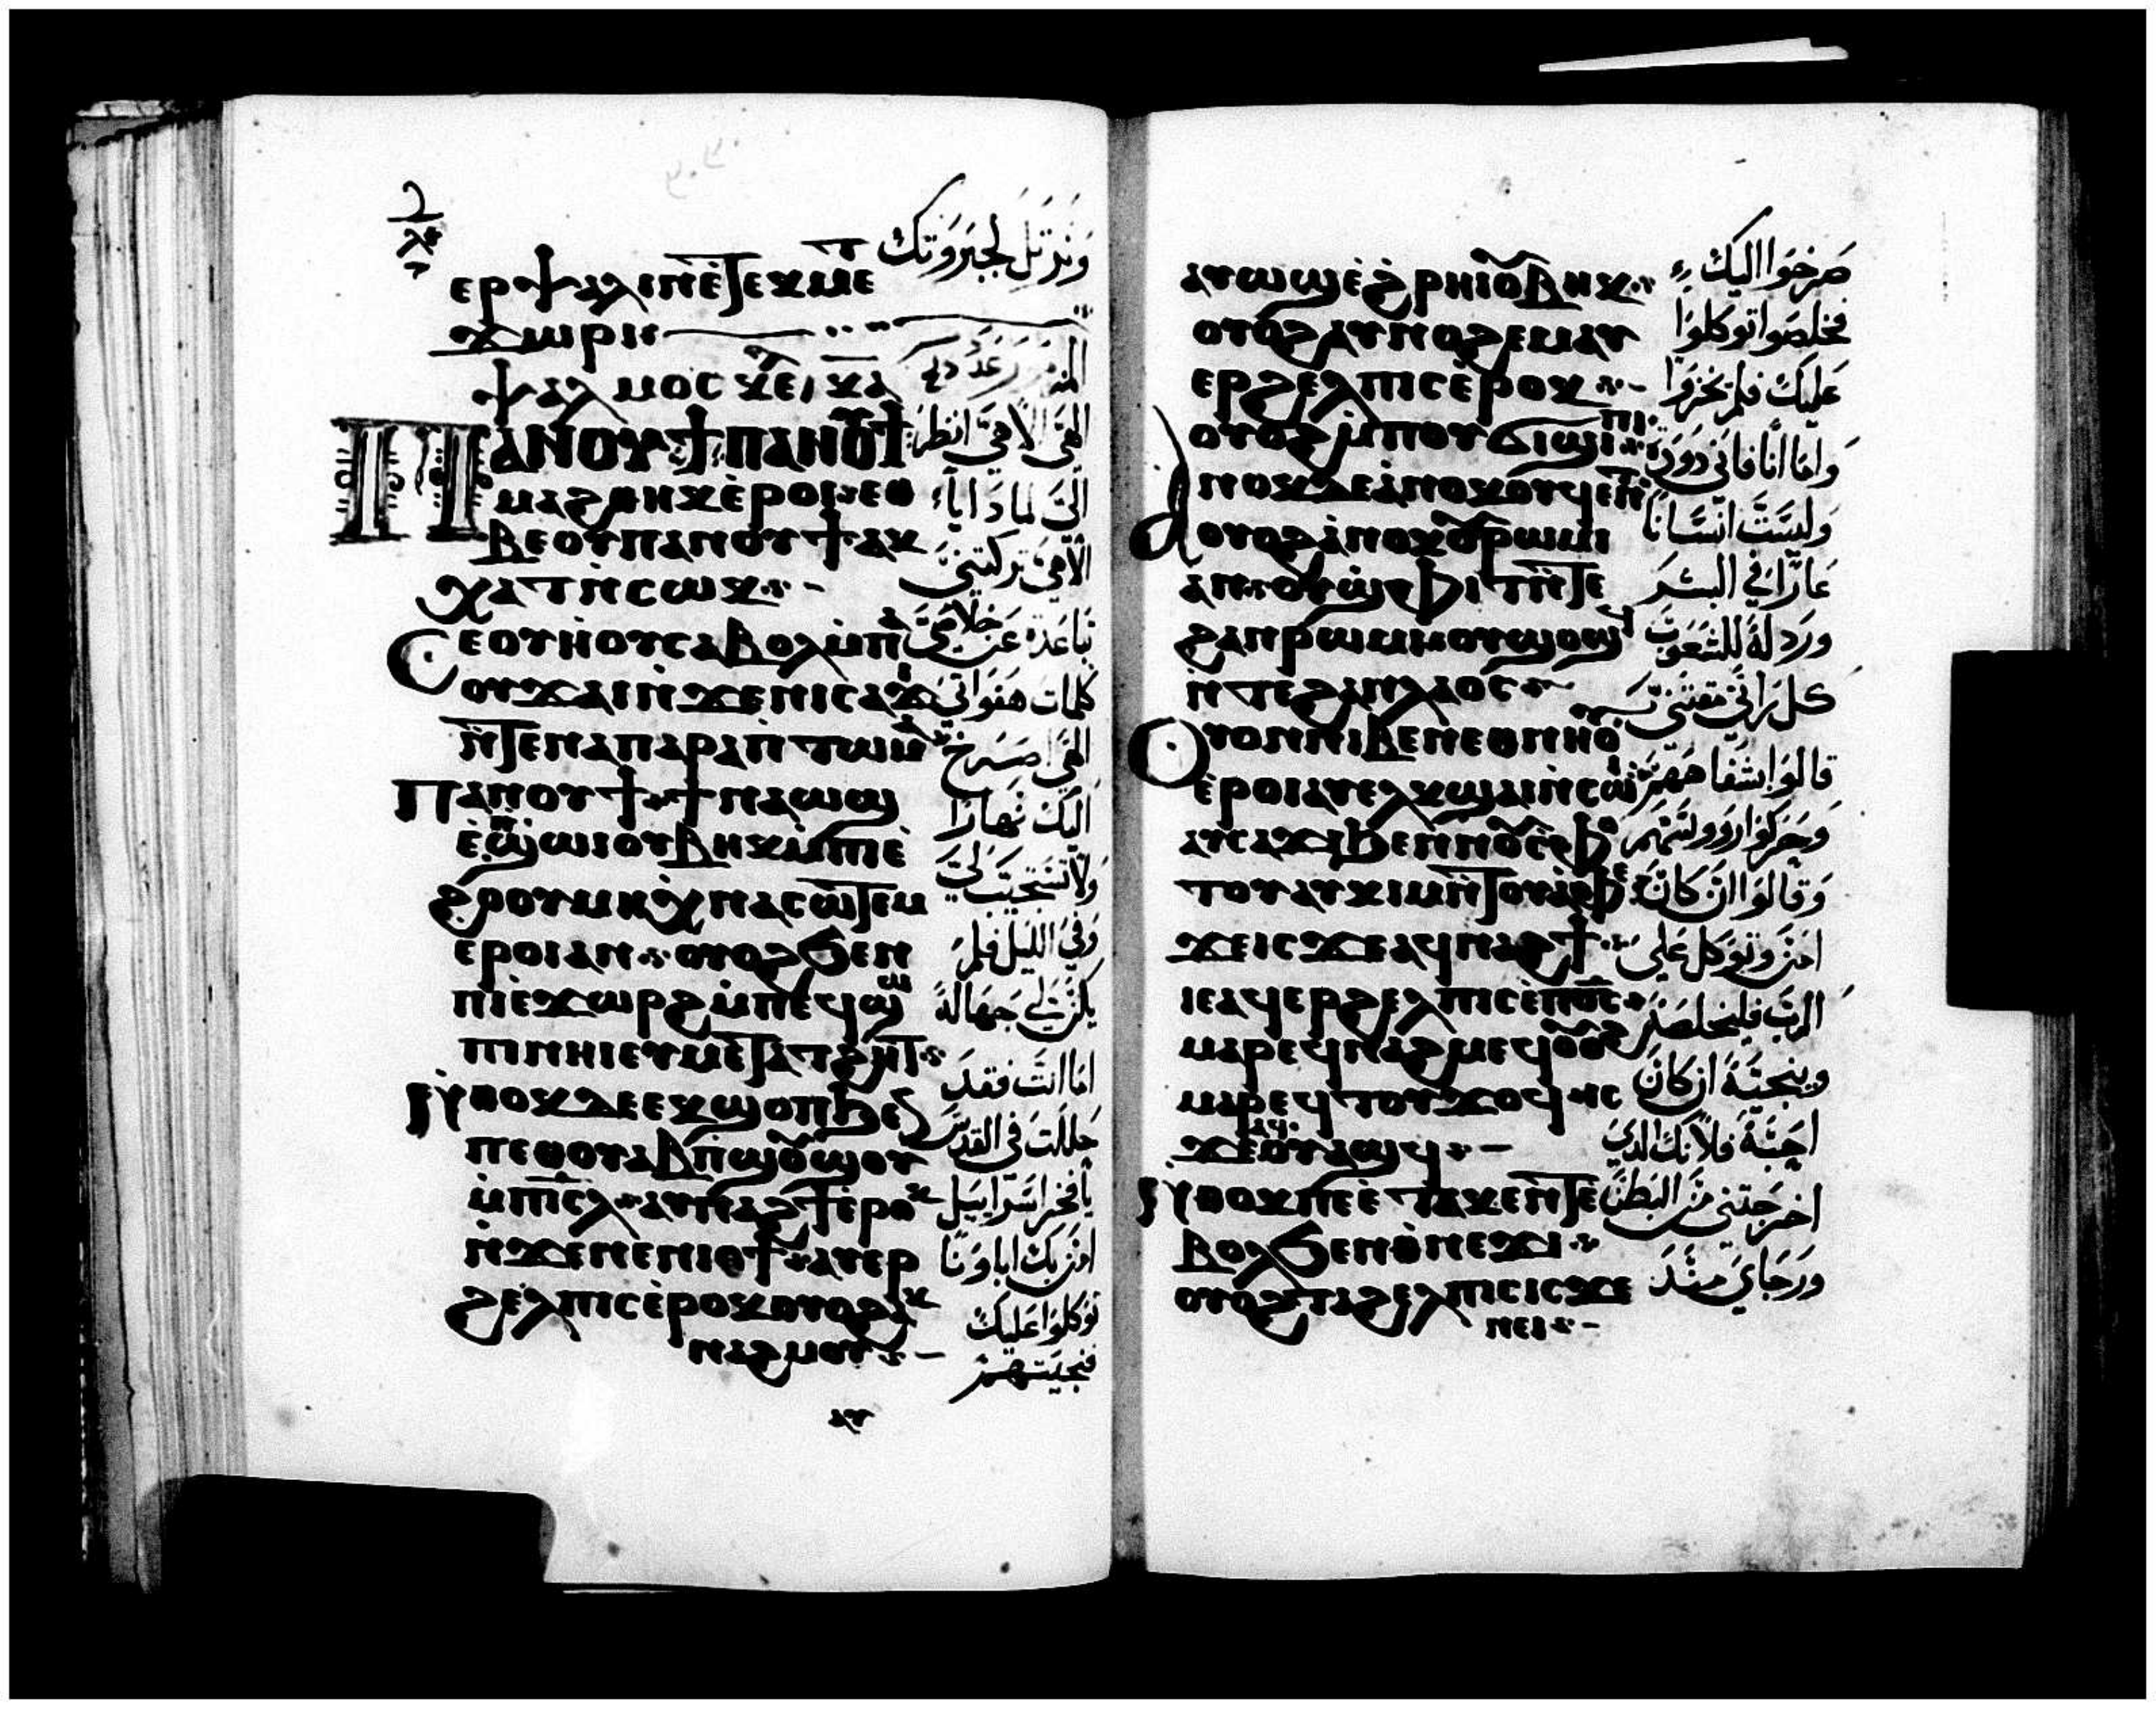 ⲉⲣⲯⲁⲗⲓⲛ̀ⲛⲉⲧⲉⲕⲙⲉⲧ
ϫⲱⲣⲓ
ⲯⲁⲗⲙⲟⲥ ⲕⲁ
ⲠⲀⲚⲞⲨϮⲠⲀⲚⲞⲨϮ
ⲙⲁϩⲑⲏⲕⲉ̀ⲣⲟⲓ ⲉⲑ
ⲃⲉⲟⲩⲡⲁⲛⲟⲩϯⲁⲕ
ⲭⲁⲧⲛ̀ⲥⲱⲕ
Ⲥⲉⲟⲩⲏⲟⲩⲥⲁⲃⲟⲗⲙ̀ⲡⲁ
ⲟⲩϫⲁⲓⲛ̀ϫⲉⲛⲓⲥⲁϫⲓ
ⲛ̀ⲧⲉⲛⲁⲡⲁⲣⲁⲡⲧⲱⲙⲁ
Ⲡⲁⲛⲟⲩϯ ϯⲛⲁⲱϣ
ⲉ̀ⲡϣⲱⲓⲟⲩⲃⲏⲕⲙ̀ⲡⲓⲉ̀
ϩⲟⲟⲩⲙⲏⲭⲛⲁⲥⲱⲧⲉⲙ
ⲉⲣⲟⲓⲁⲛ ⲟⲩⲟϩϧⲉⲛ
ⲡⲓⲉ̀ϫⲱⲣϩⲙ̀ⲡⲉϥϣⲱ
ⲡⲓⲛⲏⲓⲉⲩⲙⲉⲧⲁⲧϩⲏⲧ
Ⲛ̀ⲑⲟⲕⲇⲉⲉⲕϣⲟⲡϧⲉⲛ
ⲡⲉⲑⲟⲩⲁⲃⲡ̀ϣⲟⲩϣⲟⲩ
ⲙ̀ⲡⲓⲥⲗ ⲁⲩⲛⲁϩϯⲉ̀ⲣⲟⲕ
ⲛ̀ϫⲉⲛⲉⲛⲓⲟϯ ⲁⲩⲉⲣ
ϩⲉⲗⲡⲓⲥⲉ̀ⲣⲟⲕⲟⲩⲟϩⲁⲕ
ⲛⲁϩⲙⲟⲩ
ⲁⲩ
وَنُرَتِلَ لجبَرَوَتك
الهَيَ الاهيَ انظرَ
اليَ لماذا يا
الاهيَ تركتنيَ
تباعَدة عَن خلاصيَ
كلمات هفواتيَ
الهَيَ اصَرَخ
اليَك نهَارَا
وَلا تسَتجَيبَ ليَ
وَفي الليَل فلم
يكن لي جهَالة
امَا انت فقدَ
حَللتَ في القدسَ
يا فخر اسَرايَيل
امَن بك اباوَنا
توَكلوَا عَليَك
فنجيَتهم
ⲁⲩⲱϣⲉ̀ϩⲣⲏⲓⲟⲩⲃⲏⲕ
ⲟⲩⲟϩⲁⲩⲛⲟϩⲉⲙⲁⲩ
ⲉⲣϩⲉⲗⲡⲓⲥⲉ̀ⲣⲟⲕ
ⲟⲩⲟϩⲙ̀ⲡⲟⲩϭⲓϣⲓⲡⲓ
Ⲁⲛⲟⲕⲇⲉⲁ̀ⲛⲟⲕⲟⲩϥⲉⲛⲧ
ⲟⲩⲟϩⲁ̀ⲛⲟⲕⲟⲩⲣⲱⲙⲓ
ⲁⲛ ⲟⲩϣⲫⲓⲧⲛ̀ⲧⲉ
ϩⲁⲛⲣⲱⲙⲓⲛⲟⲩϣⲟϣϥ
ⲛ̀ⲧⲉϩⲁⲛⲗⲁⲟⲥ
Ⲟⲩⲟⲛⲛⲓⲃⲉⲛⲉⲑⲛⲏⲟⲩ
ⲉ̀ⲣⲟⲓⲁⲩⲉⲗⲕϣⲁⲓⲛ̀ⲥⲱⲓ
ⲁⲩⲥⲁϫⲓϧⲉⲛⲛⲟⲩⲥⲫⲟ
ⲧⲟⲩⲁⲩⲕⲓⲙⲛ̀ⲧⲟⲩⲁ̀ⲫⲉ
ϫⲉⲓⲥϫⲉⲁϥⲛⲁϩϯ
ⲓⲉⲁϥⲉⲣϩⲉⲗⲡⲓⲥⲉ̀ⲡϭⲟⲓⲥ
ⲙⲁⲣⲉϥⲛⲁϩⲙⲉϥⲟⲩⲟϩ
ⲙⲁⲣⲉϥⲧⲟⲩϫⲟϥ ⲓⲥ
ϫⲉⲁϥⲟⲩⲁϣϥ
Ⲛ̀ⲑⲟⲕⲡⲉⲉ̀ⲧⲁⲕⲉⲛⲧⲉ̀
ⲃⲟⲗϧⲉⲛⲑ̀ⲛⲉϫⲓ
ⲟⲩⲟϩⲧⲁϩⲉⲗⲡⲓⲥⲓⲥϫⲉ
ⲛⲉⲓ
صَرخوَا اليَك
فخلصَوا توكلوَا
عَليَك فلم يخزوَا
وَامَا انا فانيَ دوَدَة
وَليسَتَ انسَانا
عَارَا في البشرَ
ورَدلة للشعَوبَ
كل يرَانيَ يمقتنيَ
قالوَا بشفاههم
وَحَركوَا روَوسَهم
وَقالوَا ان كانَ
امَن وَتوَكل عَليَ
الرَبَ فليَخلصَه
وَينجيَهَ ان كانَ
احَبَهَ فلانك الذيَ
اخرَجَتنيَ مَن البَطنَ
وَرَجَايَ مَنذَ